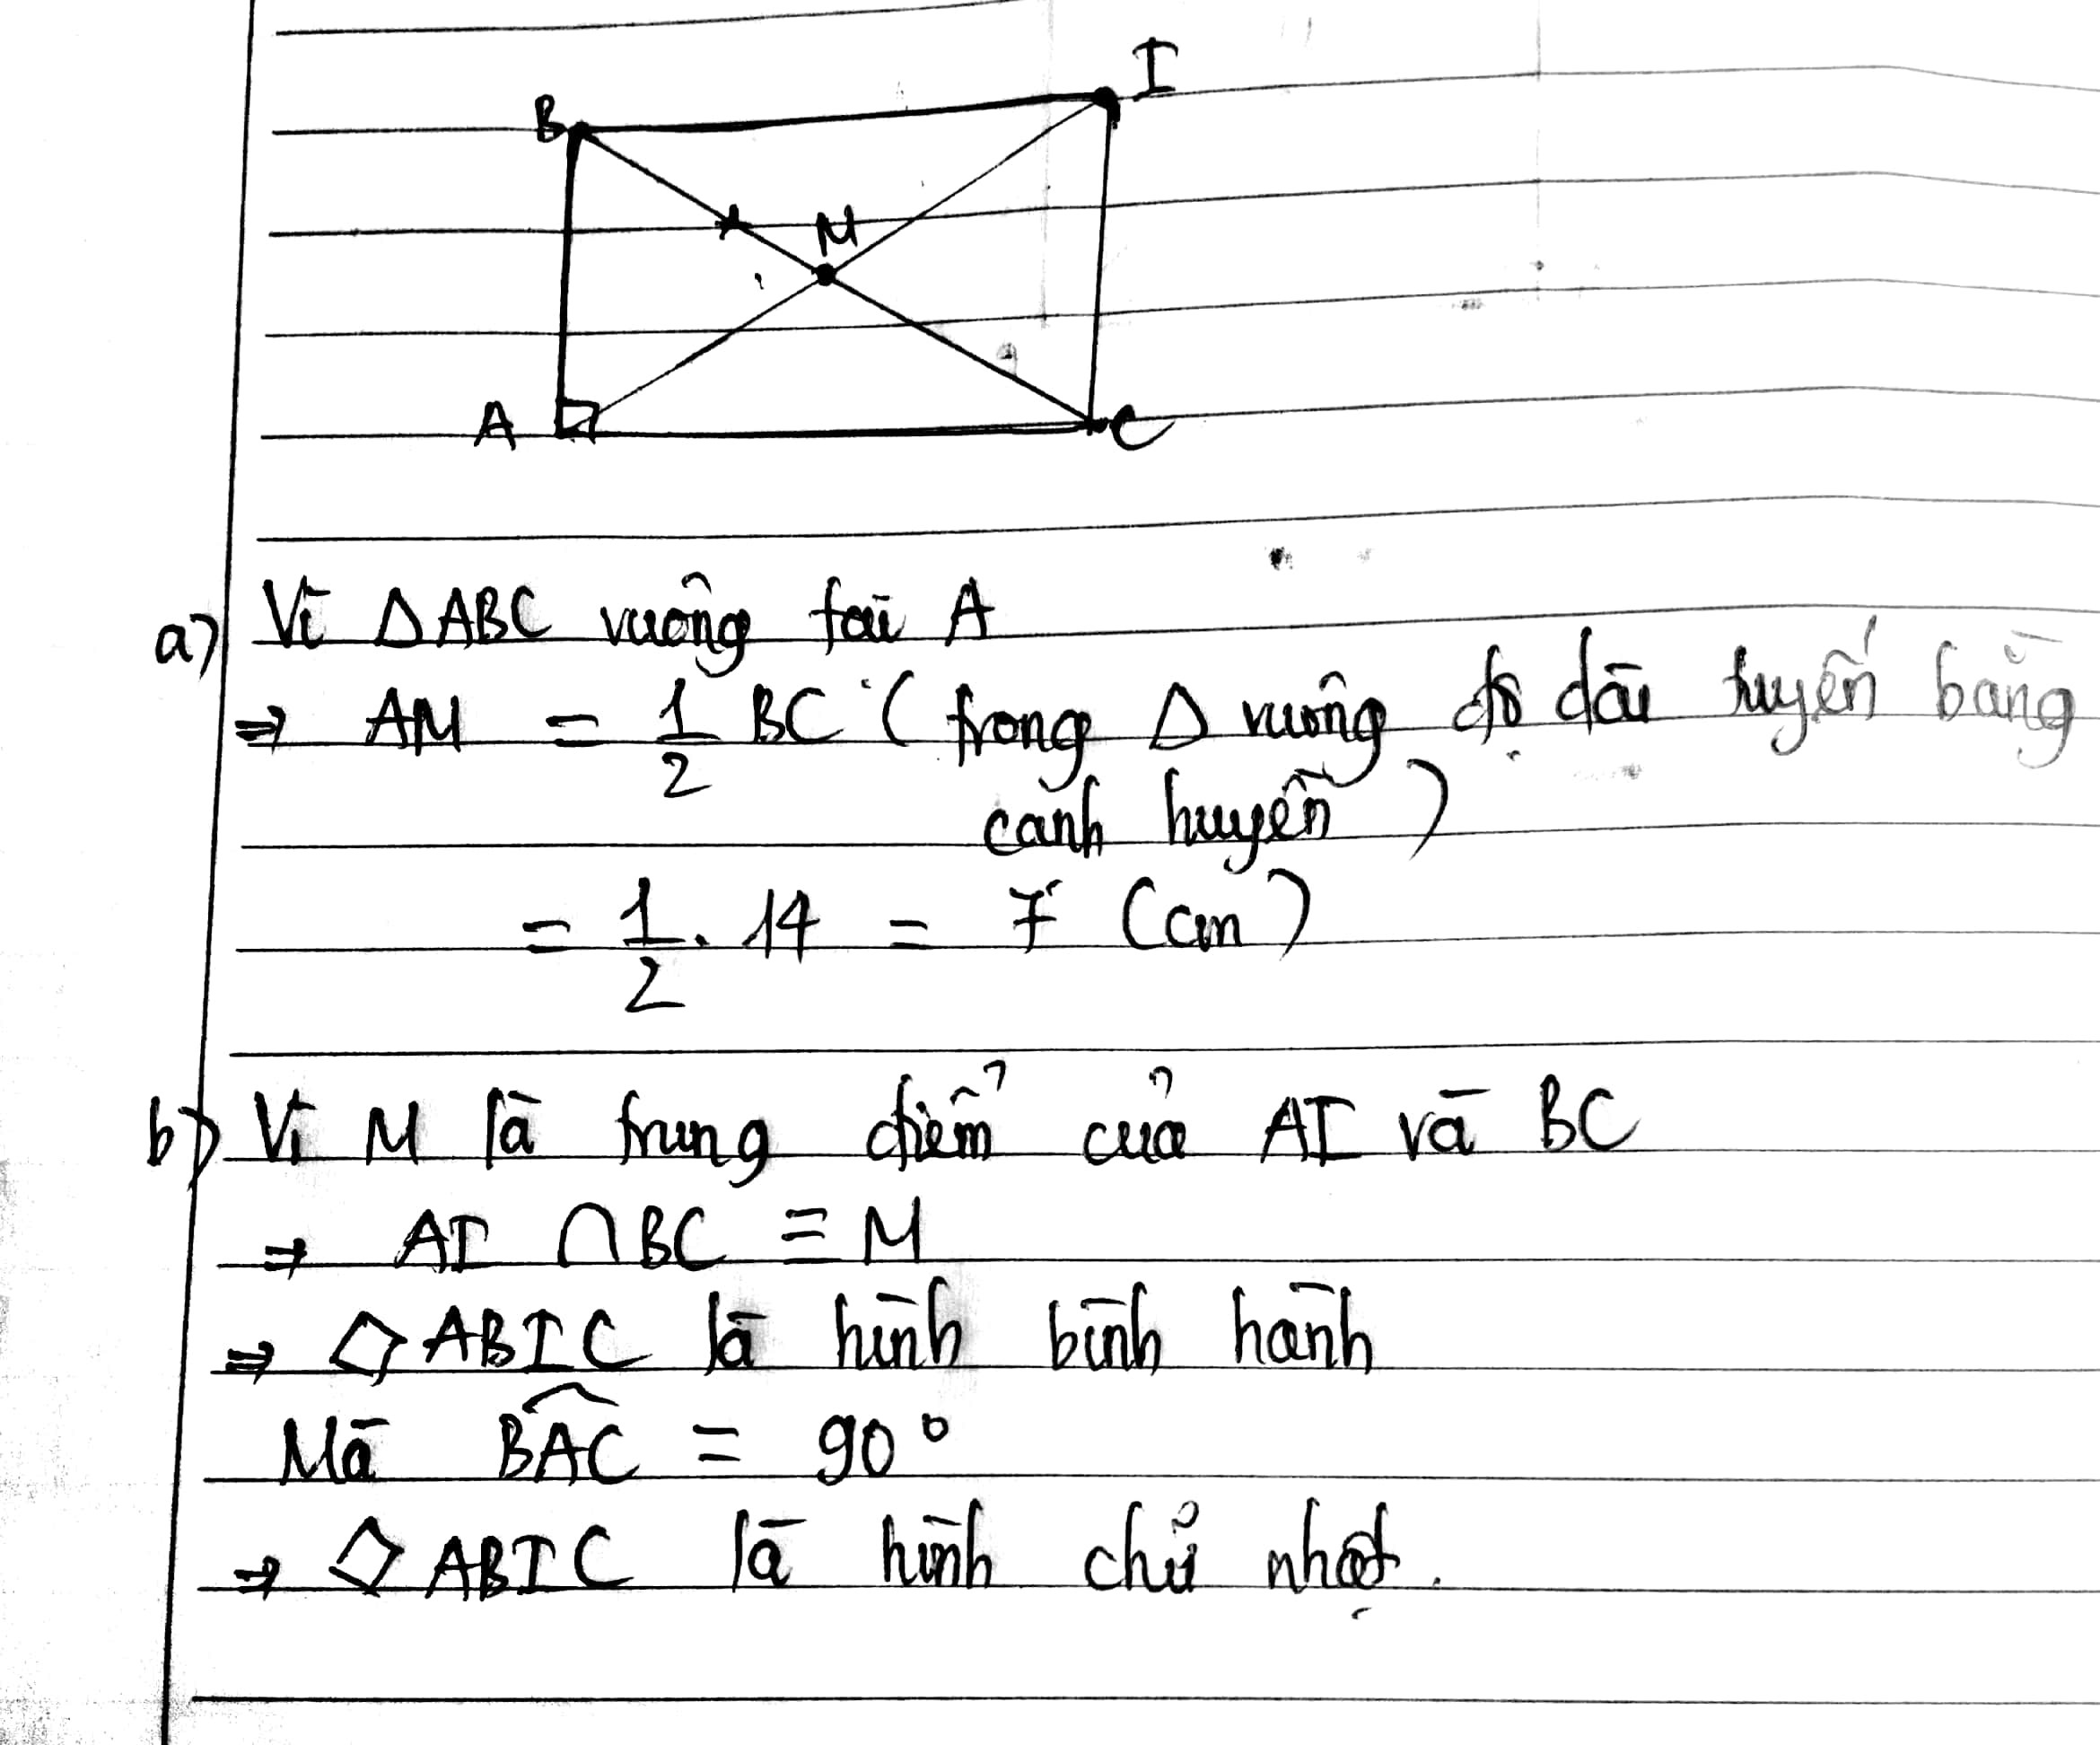 B
I
M
A
C
a) Vì ΔABC vuông tại A
⇒ AM = 1/2 BC ( trong Δ vuông độ dài tuyến bằng
cạnh huyền )
= 1/2 . 14 = 7 (cm)
b) Vì M là trung điểm của AI và BC
⇒ AI ∩ BC = M
⇒ ◇ ABIC là hình bình hành
Mà BAC = 90°
⇒ ◇ ABIC là hình chữ nhật.